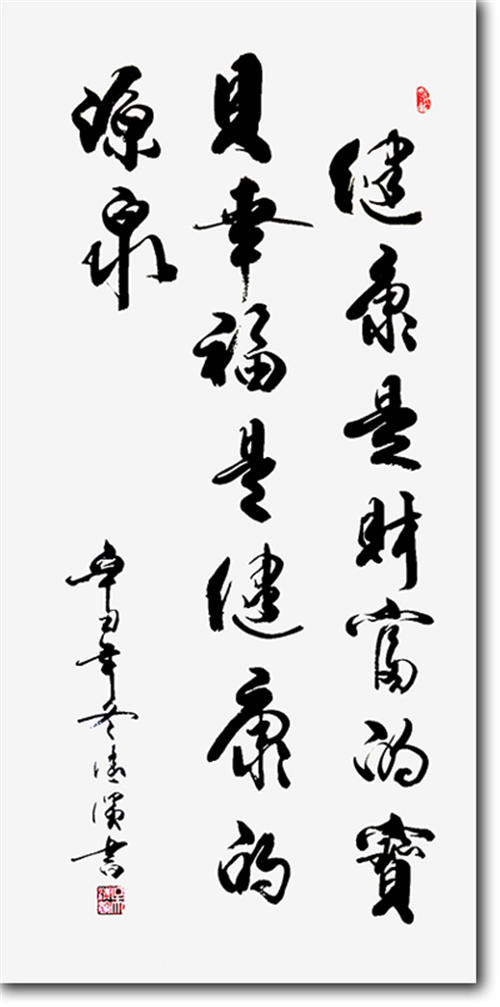 健康是財富的寶
貝幸福是健康的
源泉
辛丑年冬清溪書